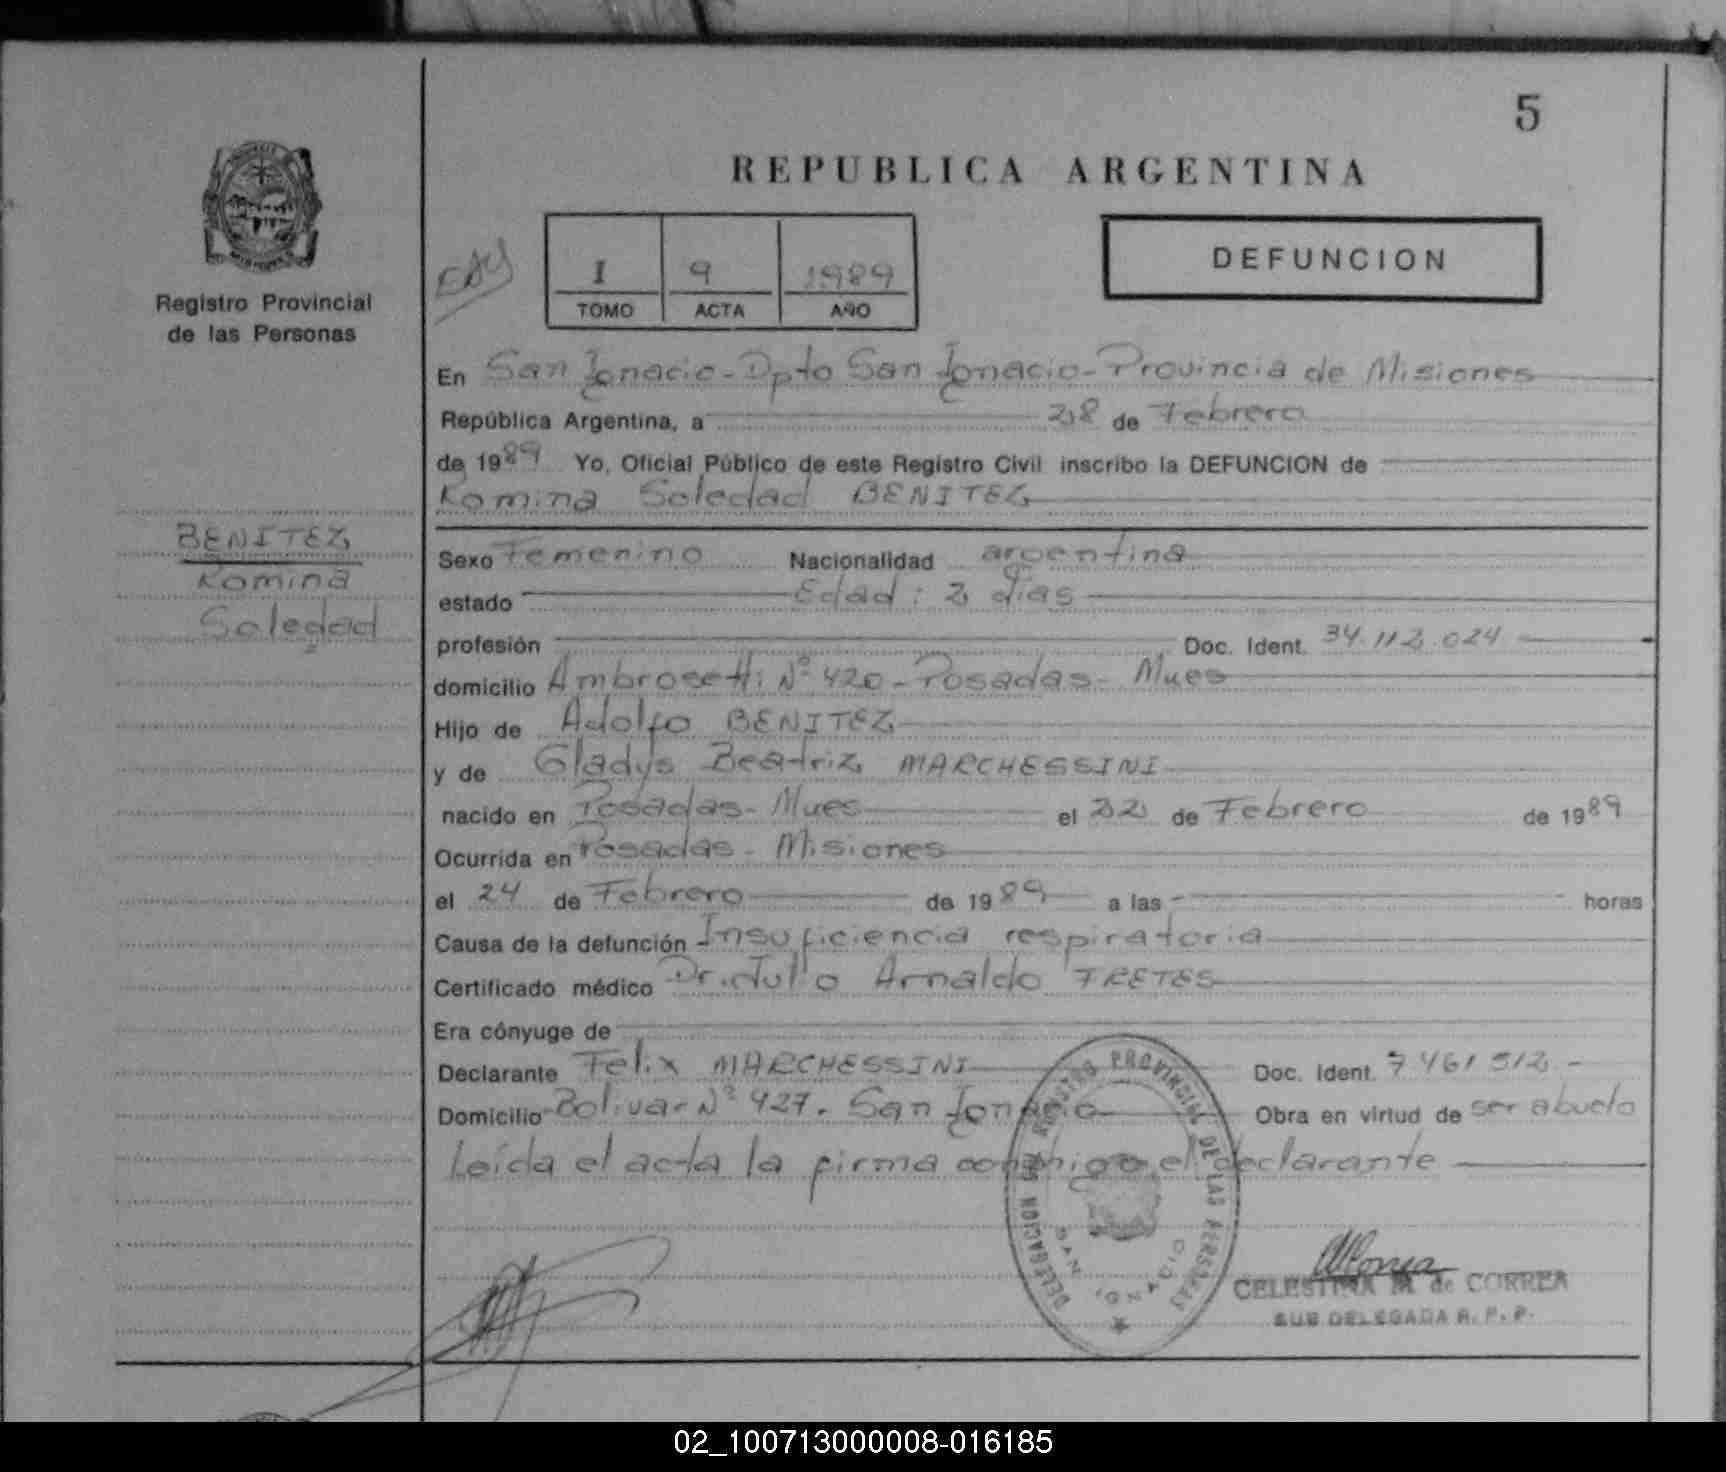 5
REPUBLICA ARGENTINA
Registro Provincial
de las Personas
I 9 1989
TOMO ACTA AÑO
DEFUNCION
En San Ignacio - Dpto San Ignacio - Provincia de Misiones
República Argentina, a 28 de Febrero
de 1989 Yo, Oficial Público de este Registro Civil inscribo la DEFUNCION de
Romina Soledad BENITEZ
BENITEZ
Romina
Soledad
Sexo Femenino Nacionalidad argentina
estado Edad: 2 días
profesión Doc. Ident. 34.112.024
domicilio Ambrosetti Nº 420 - Posadas - Mnes
Hijo de Adolfo BENITEZ
y de Gladys Beatriz MARCHESSINI
nacido en Posadas - Mnes el 22 de Febrero de 1989
Ocurrida en Posadas - Misiones
el 24 de Febrero de 1989 a las horas
Causa de la defunción Insuficiencia respiratoria
Certificado médico Dr. Julio Arnaldo TRETES
Era cónyuge de
Declarante Felix MARCHESSINI Doc. Ident. 7 461 512 -
Domicilio Bolivar Nº 427. San Ignacio Obra en virtud de ser abuelo
Leída el acta la firma conmigo el declarante
DELEGACION REGISTRO PROVINCIAL DE LAS PERSONAS
SAN IGNACIO
CELESTINA M. de CORREA
SUB DELEGADA R. P. P.
02_100713000008-016185